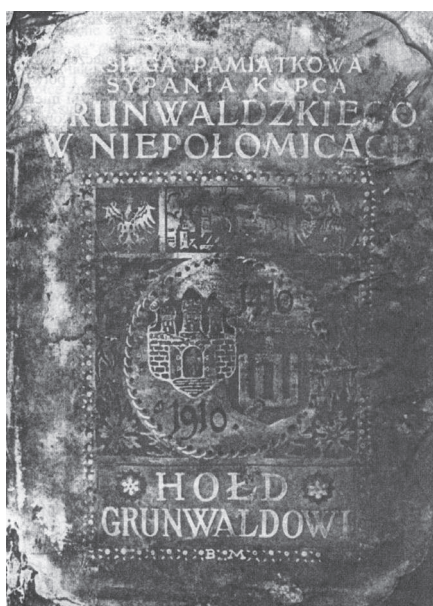 KSIĘGA PAMIĄTKOWA
SYPANIA KOPCA
GRUNWALDZKIEGO
W NIEPOŁOMICACH
1410
1910
HOŁD
GRUNWALDOWI
B M